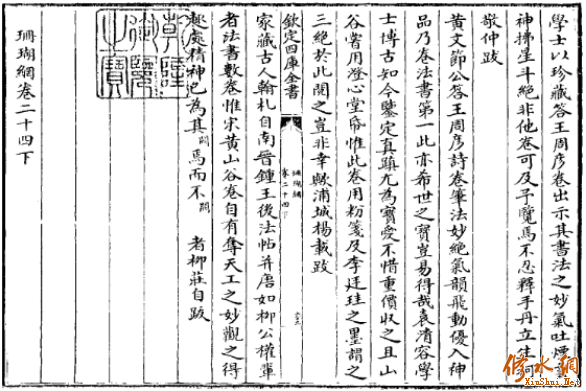 學士以珍藏答王周彥卷出示其書法之妙氣吐煙雲
神拂星斗絕非他卷可及予覽焉不忍釋手丹丘柯
敬仲跋
黃文節公答王周彥詩卷筆法妙絕氣韻飛動優入神
品乃卷法書第一此亦希世之寶豈易得哉袁清容學
士博古知今鑒定真蹟尤為寶愛不惜重價收之且山
谷嘗用澄心堂紙惟此卷用粉箋及李廷珪之墨謂之
三絕於此閱之豈非幸歟浦城楊載跋
欽定四庫全書
珊瑚網
卷二十四下
家藏古人翰札自南晉鍾王後法帖并唐如柳公權軍
者法書數卷惟宋黃山谷卷自有奪天工之妙觀之得
趣處精神也為其闕焉而不闕者柳莊自跋
珊瑚網卷二十四下
乾隆御覽之寶
修水網
XiuShui.Net